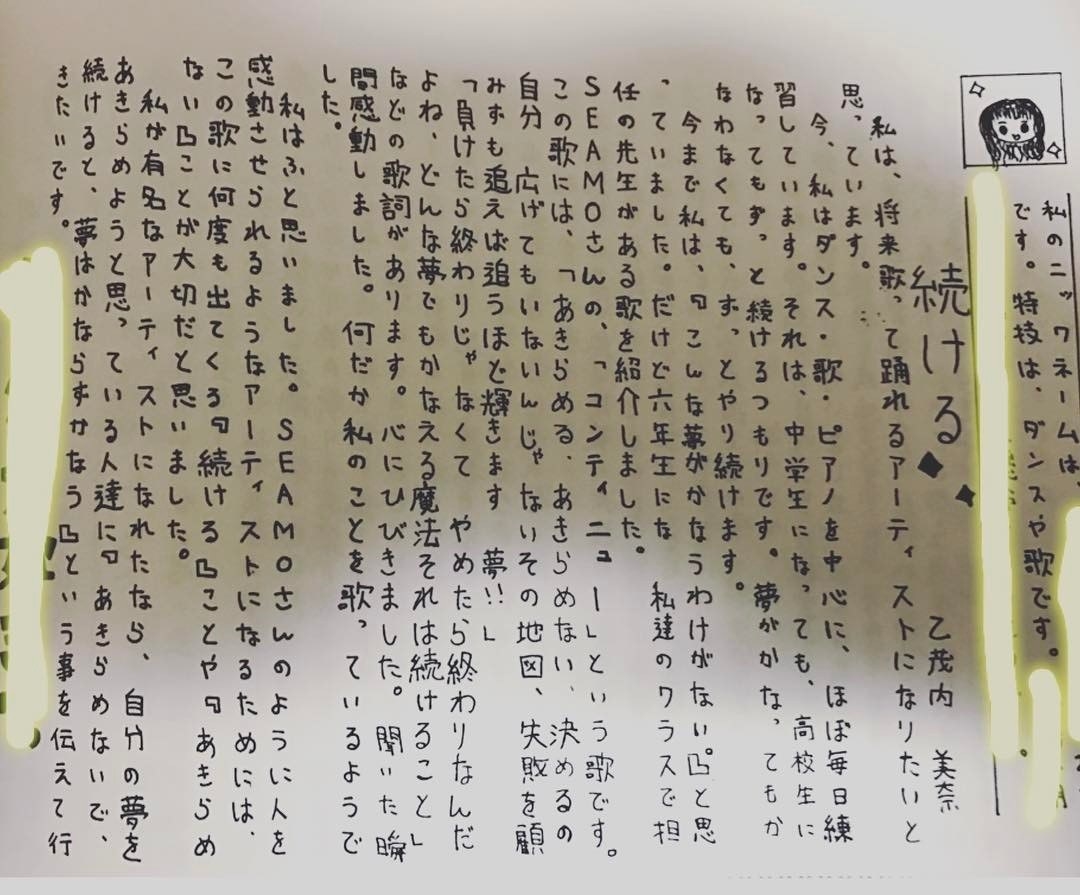 私のニックネームは、
です。特技は、ダンスや歌です。
続ける
乙茂内 美奈
私は、将来歌って踊れるアーティストになりたいと
思っています。
今、私はダンス・歌・ピアノを中心に、ほぼ毎日練
習しています。それは、中学生になっても、高校生に
なってもずっと続けるつもりです。夢がかなってもか
なわなくても、ずっとやり続けます。
今まで私は、『こんな夢がかなうわけがない。』と思
っていました。だけど六年生にな 私達のクラスで担
任の先生がある歌を紹介しました。
SEAMOさんの、「コンティニュー」という歌です。
この歌には、「あきらめる、あきらめない、決めるの
自分 広げてもいないんじゃないその地図、失敗を顧
みずも追えば追うほど輝きます 夢!!」
「負けたら終わりじゃなくて やめたら終わりなんだ
よね、どんな夢でもかなえる魔法それは続けること」
などの歌詞があります。心にひびきました。聞いた瞬
間感動しました。何だか私のことを歌っているようで
した。
私はふと思いました。SEAMOさんのように人を
感動させられるようなアーティストになるためには、
この歌に何度も出てくる『続ける』ことや『あきらめ
ない』ことが大切だと思いました。
私が有名なアーティストになれたなら、自分の夢を
あきらめようと思っている人達に『あきらめないで、
続けると、夢はかならずかなう』という事を伝えて行
きたいです。